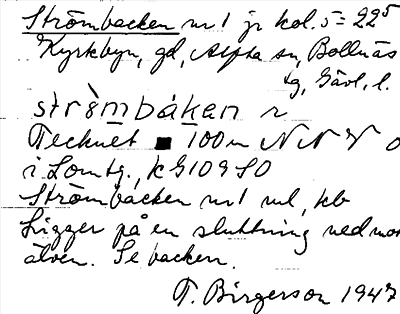 Strömbacken nr 1 jr kol. 5 = 22⁵
Kyrkbyn, gd, Alfta sn, Bollnäs
tg, Gävl. l.
strömbàkan n
Tecknet ■ 100 m NNV o
i Lomtg., k G 109 SO
Strömbacken nr 1 ml, kb
Ligger på en sluttning ned mot
älven. Se backen.
T. Birgerson 1947